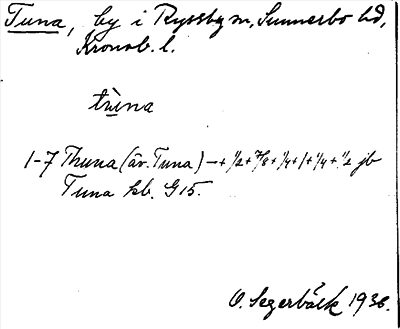 Tuna, by i Ryssby sn, Sunnerbo hd,
Kronob. l.
tùna
1-7 Thuna (äv. Tuna) – + 1/2 + 7/8 + 1/4 + 1 + 1/4 + 1/2 jb
Tuna kb. G15.
O. Segerbäck 1936.